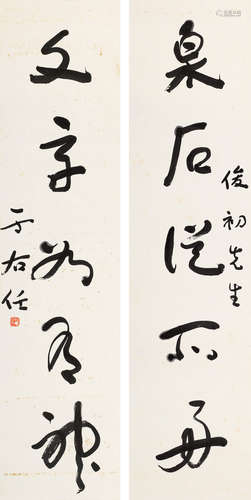 泉石從所
俊初先生
文字為有神
于右任